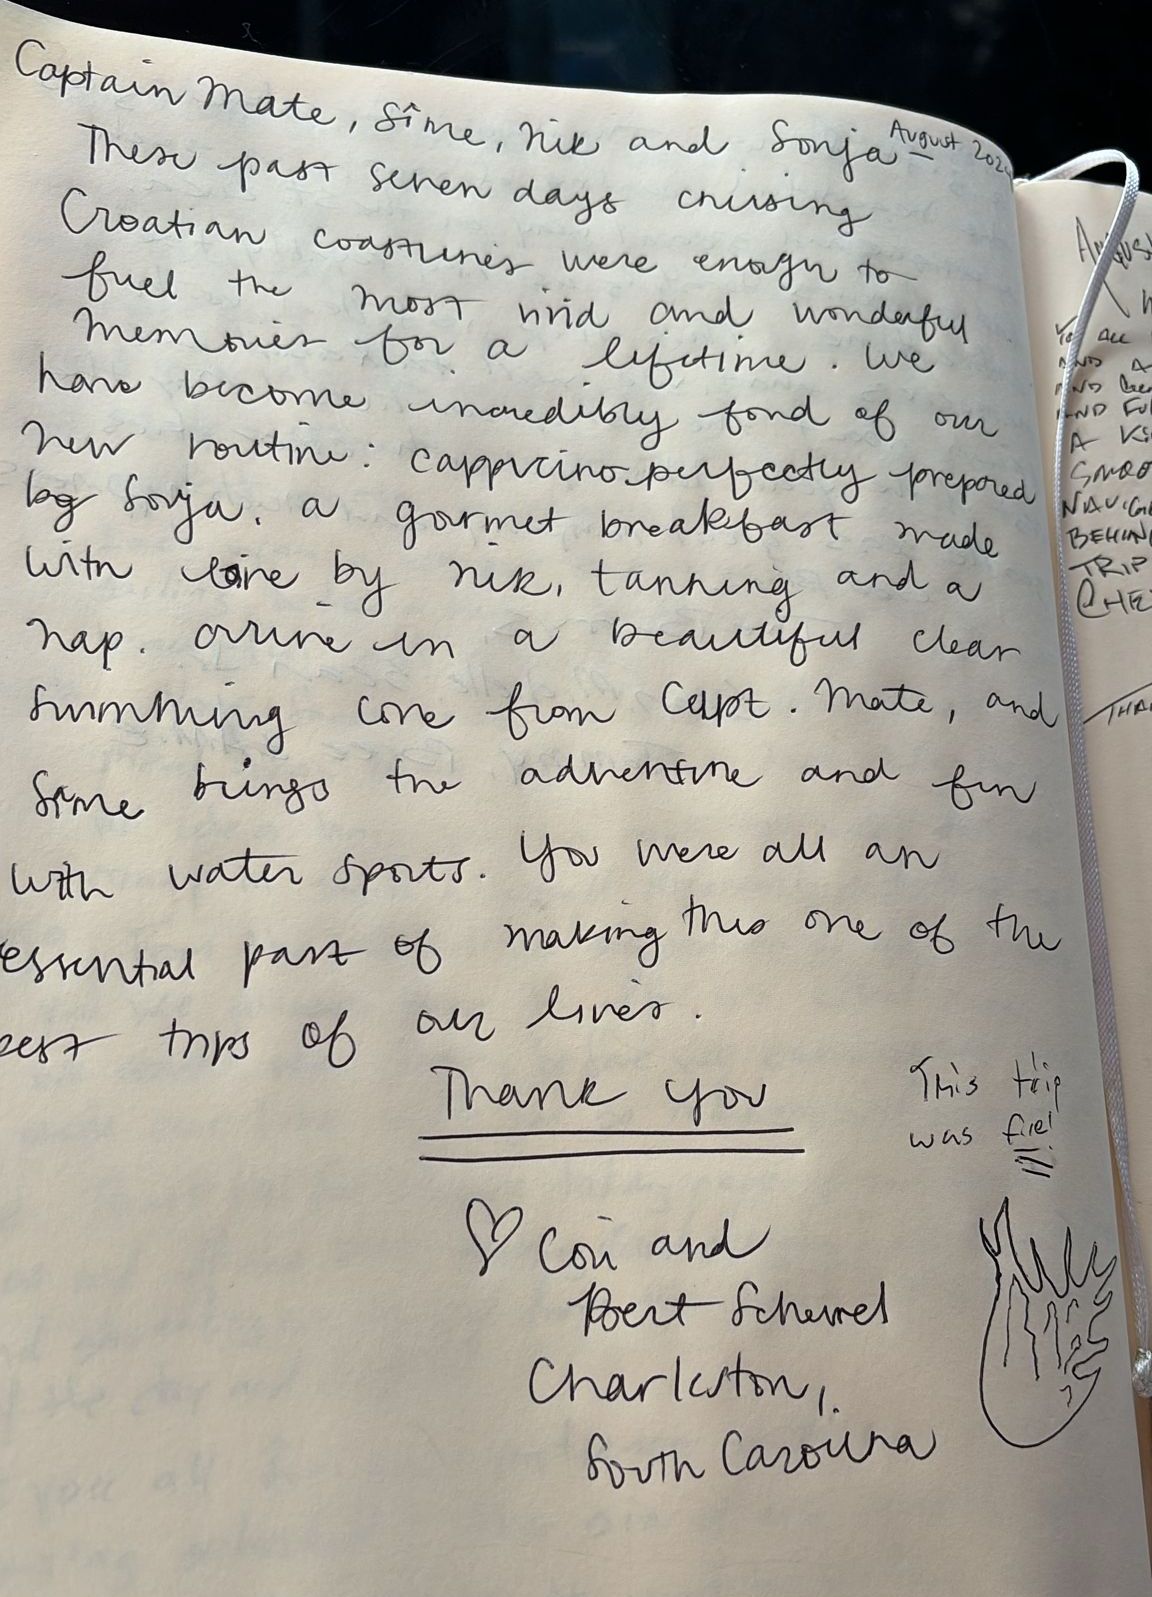 Captain Mate, Sime, Nik and Sonja — August
These past seven days cruising
Croatian coastlines were enough to
fuel the most vivid and wonderful
memories for a lifetime. We
have become incredibly fond of our
new routine: cappucino perfectly prepared
by Sonja. a gourmet breakfast made
with love by Nik, tanning and a
nap. arrive in a beautiful clear
swimming cove from Capt. Mate, and
Sime brings the adventure and fun
with water sports. You were all an
essential part of making this one of the
best trips of our lives.
Thank you
This trip
was fire!
♡ Cori and
Bert
Charleston,
South Carolina
TO ALL
AND
AND
AND
A
NAVIG
BEHIN
TRIP
CHE